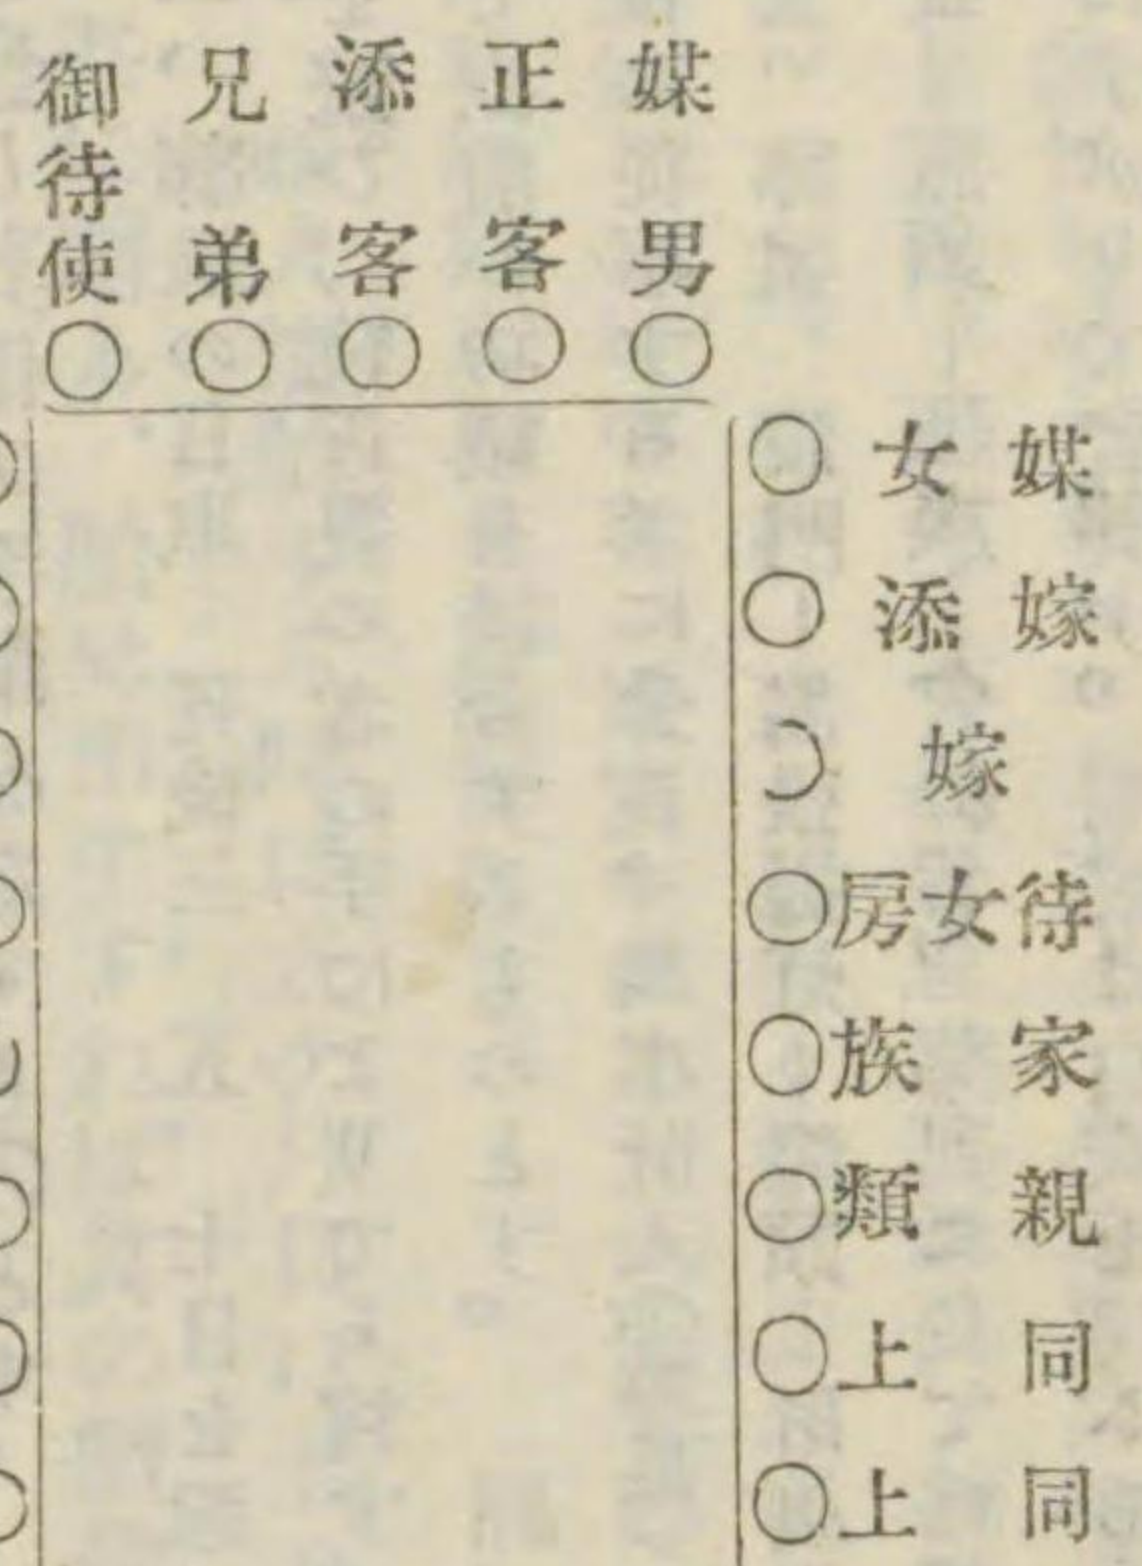 媒男○
正客○
添客○
兄弟○
御待使○
媒女○
嫁添○
嫁○
待女房○
家族○
親類○
同上○
同上○